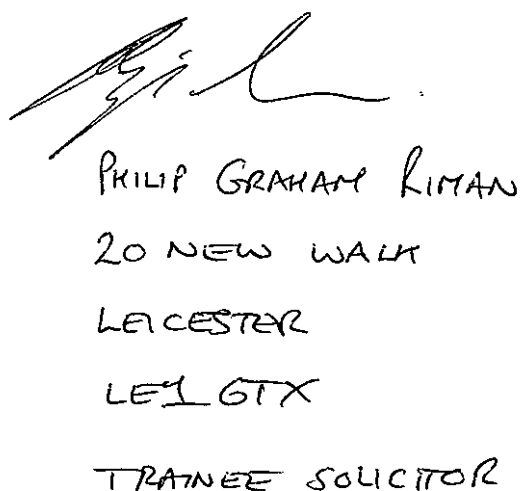 PHILIP GRAHAM RIMAN
20 NEW WALK
LEICESTER
LE1 6TX
TRAINEE SOLICITOR